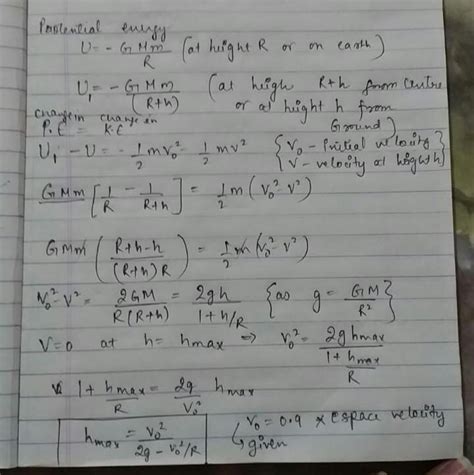 Protential energy
U = - GMm/R (at height R or on earth)
U₁ = - GMm/(R+h) (at heigh R+h from centre or at height h from Ground)
change in P.E = change in K.E
U₁ - U = 1/2 mv₀² - 1/2 mv² {v₀ - initial velocity
V - velocity at height h}
GMm [1/R - 1/R+h] = 1/2 m (v₀² - v²)
GMm (R+h-h/(R+h)R) = 1/2 m (v₀² - v²)
V₀² - V² = 2GM/R(R+h) = 2gh/1+h/R {as g = GM/R²}
V=0 at h= hmax ⇒ V₀² = 2g hmax/1+hmax/R
1 + hmax/R = 2g/V₀² hmax
hmax = V₀²/2g - V₀²/R
V₀ = 0.9 × Espace velocity
given